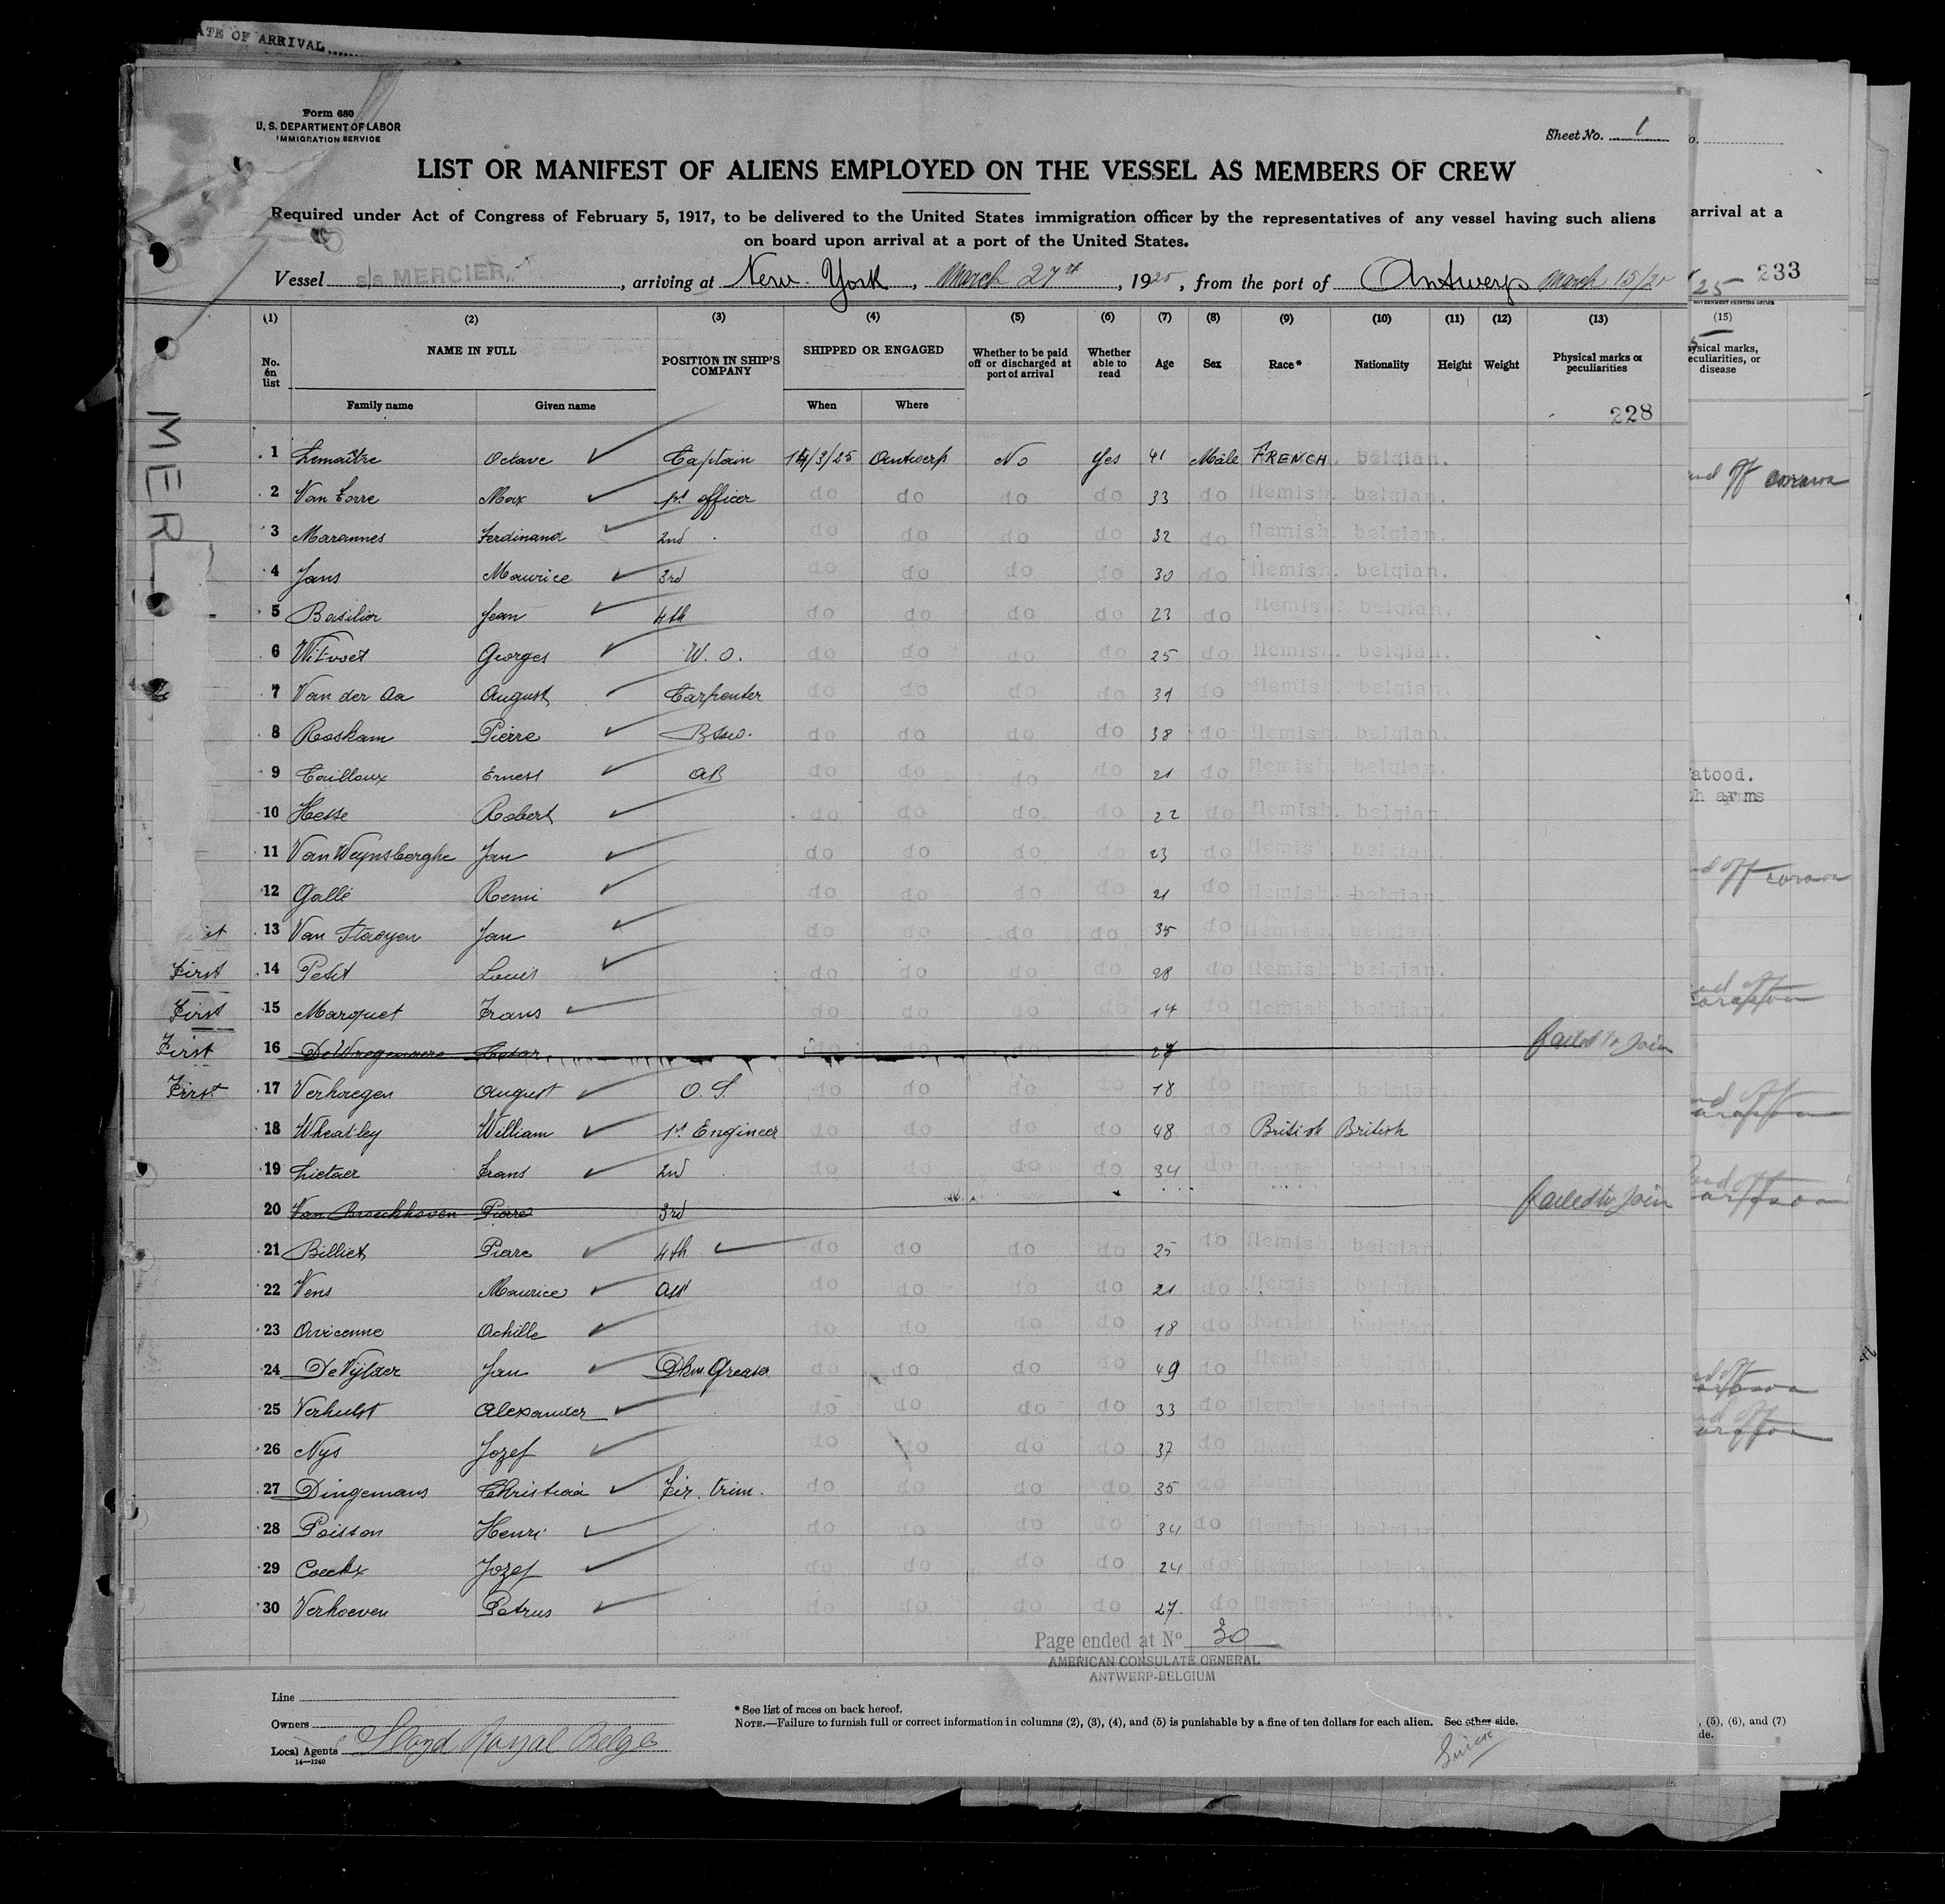 ATE OF ARRIVAL
Form 680
U. S. DEPARTMENT OF LABOR
IMMIGRATION SERVICE
Sheet No. 1
LIST OR MANIFEST OF ALIENS EMPLOYED ON THE VESSEL AS MEMBERS OF CREW
Required under Act of Congress of February 5, 1917, to be delivered to the United States immigration officer by the representatives of any vessel having such aliens
on board upon arrival at a port of the United States.
arrival at a
Vessel s/s MERCIER, arriving at New-York, March 27th, 1925, from the port of Antwerp March 15/25
25 233
(1) (2) (3) (4) (5) (6) (7) (8) (9) (10) (11) (12) (13) (15)
No. on list NAME IN FULL POSITION IN SHIP'S COMPANY SHIPPED OR ENGAGED Whether to be paid off or discharged at port of arrival Whether able to read Age Sex Race* Nationality Height Weight Physical marks or peculiarities
ysical marks, eculiarities, or disease
Family name Given name When Where
228
MER
1 Lemaître Octave Captain 14/3/25 Antwerp No Yes 41 Male FRENCH. belgian.
2 Van Torre Max 1st officer do do do do 33 do flemish. belgian.
3 Marannes Ferdinand 2nd do do do do 32 do flemish. belgian.
4 Jans Maurice 3rd do do do do 30 do flemish. belgian.
5 Basilior Jean 4th do do do do 23 do flemish. belgian.
6 Witvoet Georges W. O. do do do do 25 do flemish. belgian.
7 Van der Aa August Carpenter do do do do 31 do flemish. belgian.
8 Roskam Pierre Bsw. do do do do 38 do flemish. belgian.
9 Tailloux Ernest AB do do do do 21 do flemish. belgian.
10 Hesse Robert do do do do 22 do flemish. belgian.
11 Van Weynsberghe Jan do do do do 23 do flemish. belgian.
12 Gallé Remi do do do do 21 do flemish. belgian.
13 Van Staeyen Jan do do do do 35 do flemish. belgian.
First 14 Petit Louis do do do do 28 do flemish. belgian.
First 15 Marquet Frans do do do do 14 do flemish. belgian.
First 16 César failed to join
First 17 Verhoegen August O. S. do do do do 18 do flemish. belgian.
18 Wheatley William 1st Engineer do do do do 48 do British British
19 Lietaer Frans 2nd do do do do 34 do flemish. belgian.
20 Van Broeckhoven Pierre 3rd failed to join
21 Billiet Pierre 4th do do do do 25 do flemish. belgian.
22 Vens Maurice Asst do do do do 21 do flemish. belgian.
23 Avicenne Achille do do do do 18 do flemish. belgian.
24 De Vylder Jan Dkm. Greaser do do do do 49 do flemish.
25 Verhulst Alexander do do do do 33 do flemish. belgian.
26 Nys Jozef do do do do 37 do
27 Dingemans Christiaa Fir. trim. do do do do 35 do
28 Poisson Henri do do do do 34 do flemish. belgian.
29 Coeckx Jozef do do do do 24 do flemish. belgian.
30 Verhoeven Petrus do do do do 27. do flemish. belgian.
Page ended at No 30
AMERICAN CONSULATE GENERAL
ANTWERP-BELGIUM
Line
Owners
Local Agents Lloyd Royal Belge
14—1240
* See list of races on back hereof.
NOTE.—Failure to furnish full or correct information in columns (2), (3), (4), and (5) is punishable by a fine of ten dollars for each alien. See other side.
, (5), (6), and (7)
de.
atood.
h arms